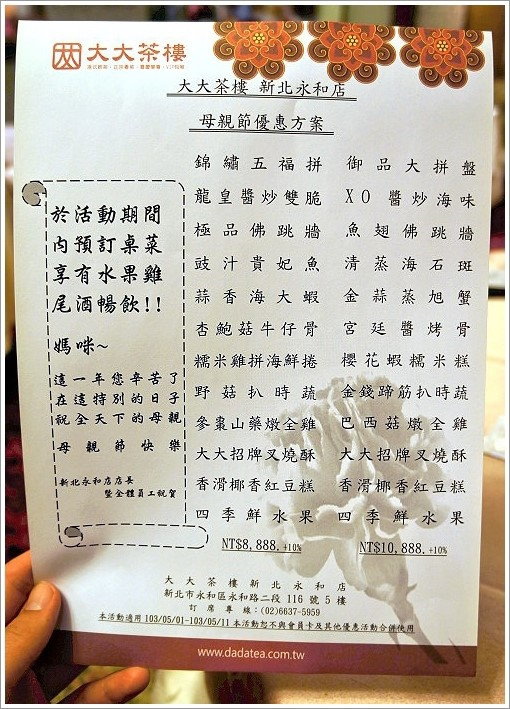 大大茶樓
港式飲茶．正宗粵菜．喜慶宴客．VIP包廂
大大茶樓 新北永和店
母親節優惠方案
於活動期間
內預訂桌菜
享有水果雞
尾酒暢飲!!
媽咪~
這一年您辛苦了
在這特別的日子
祝全天下的母親
母親節快樂
新北永和店店長
暨全體員工祝賀
錦繡五福拼
龍皇醬炒雙脆
極品佛跳牆
豉汁貴妃魚
蒜香海大蝦
杏鮑菇牛仔骨
糯米雞拼海鮮捲
野菇扒時蔬
參棗山藥燉全雞
大大招牌叉燒酥
香滑椰香紅豆糕
四季鮮水果
NT$8,888.+10%
御品大拼盤
XO醬炒海味
魚翅佛跳牆
清蒸海石斑
金蒜蒸旭蟹
宮廷醬烤骨
櫻花蝦糯米糕
金錢蹄筋扒時蔬
巴西菇燉全雞
大大招牌叉燒酥
香滑椰香紅豆糕
四季鮮水果
NT$10,888.+10%
大大茶樓新北永和店
新北市永和區永和路二段 116 號 5 樓
訂席專線：(02)6637-5959
本活動適用 103/05/01-103/05/11 本活動恕不與會員卡及其他優惠活動合併使用
www.dadatea.com.tw